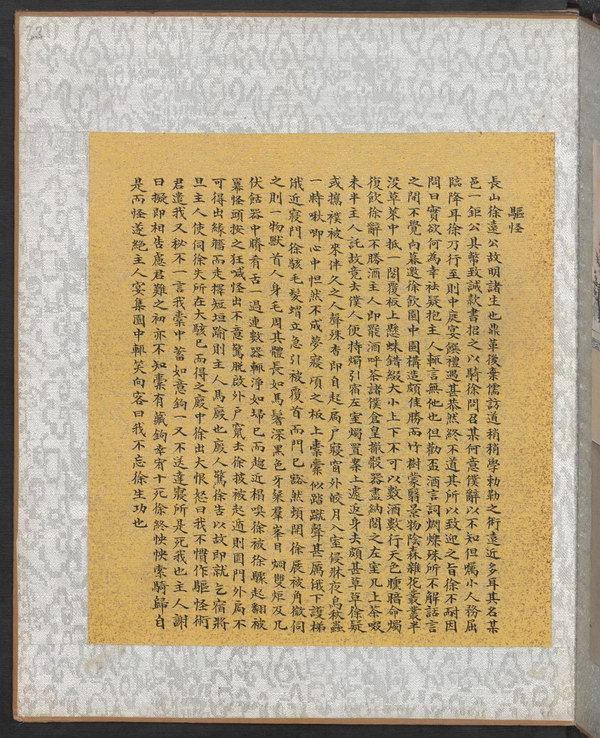 驅怪
長山徐遠公故明諸生也鼎革後棄儒訪道稍稍學勅勒之術遠近多耳其名某
邑一鉅公具幣致誠款書招之以騎徐問召某何意僕辭以不知但囑小人務屈
臨降耳徐乃行至則中庭宴饌禮遇甚恭然終不道其所以致迎之旨徐不耐因
問曰實欲何為幸祛疑抱主人輒言無他也但勸盃酒言詞爓爍殊所不解話言
之間不覺向暮邀徐飲園中園構造頗佳勝而竹樹蒙翳景物陰森雜花叢叢半
沒草萊中抵一閣覆板上懸蛛錯綴大小上下不可以數酒數行天色曛暗命燭
復飲徐辭不勝酒主人即罷酒呼茶諸僕倉皇撤殽器盡納閣之左室几上茶啜
未半主人託故竟去僕人便持燭引宿左室燭置案上遽返身去頗甚草草徐疑
或攜襆被來伴久之人聲殊杳即自起扃戶寢窗外皎月入室侵牀夜鳥秋蟲
一時啾唧心中怛然不成夢寢頃之板上橐橐似踏蹴聲甚厲俄下護梯
俄近寢門徐駭毛髮蝟立急引被覆首而門已豁然頓開徐展被角微伺
之則一物獸首人身毛周其體長如馬鬐深黑色牙粲羣峯目炯雙炬及几
伏餂器中賸肴舌一過連數器輒淨如掃已而趨近榻嗅徐被徐驟起翻被
冪怪頭按之狂喊怪出不意驚脫啟外戶竄去徐披被起遁則園門外扃不
可得出緣牆而走擇短垣踰則主人馬廄也廄人驚徐告以故即就乞宿將
旦主人使伺徐失所在大駭已而得之廄中徐出大恨怒曰我不慣作驅怪術
君遣我又秘不一言我橐中蓄如意鉤一又不送達寢所是死我也主人謝
曰擬即相告慮君難之初亦不知橐有藏鉤幸宥十死徐終怏怏索騎歸自
是而怪遂絕主人宴集園中輒笑向客曰我不忘徐生功也